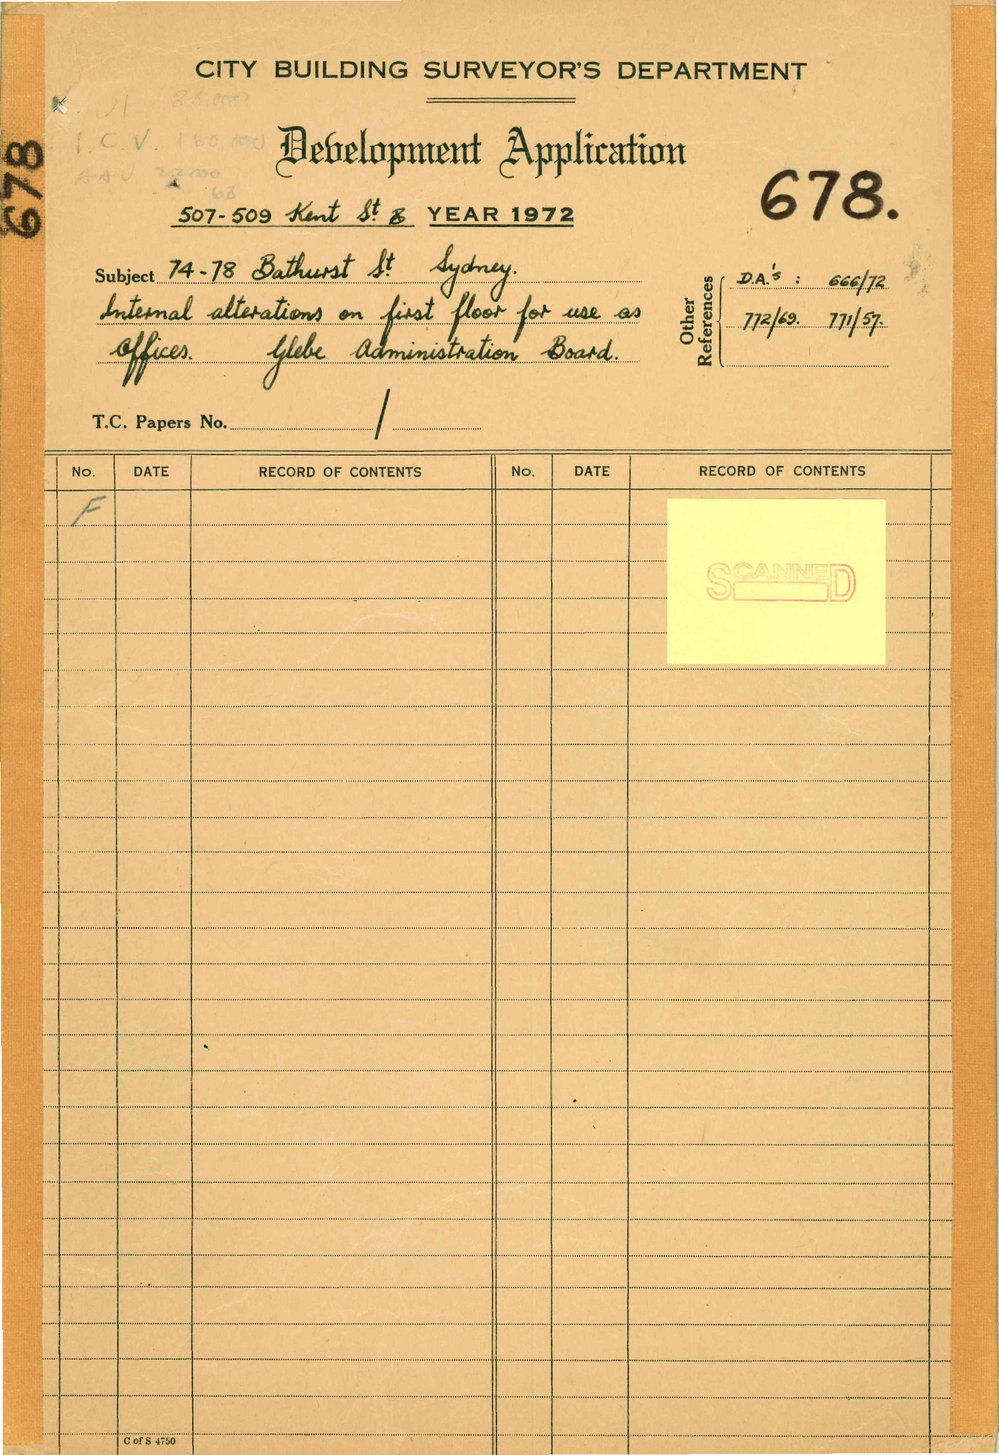 CITY BUILDING SURVEYOR'S DEPARTMENT
I.C.V.
Development Application
678
678.
507-509 Kent St & YEAR 1972
Subject 74-78 Bathurst St Sydney.
Internal alterations on first floor for use as
offices. Glebe Administration Board.
Other References
D.A.'s : 666/72
772/69. 771/57.
T.C. Papers No. /
No. DATE RECORD OF CONTENTS No. DATE RECORD OF CONTENTS
F
SCANNED
C of S 4750